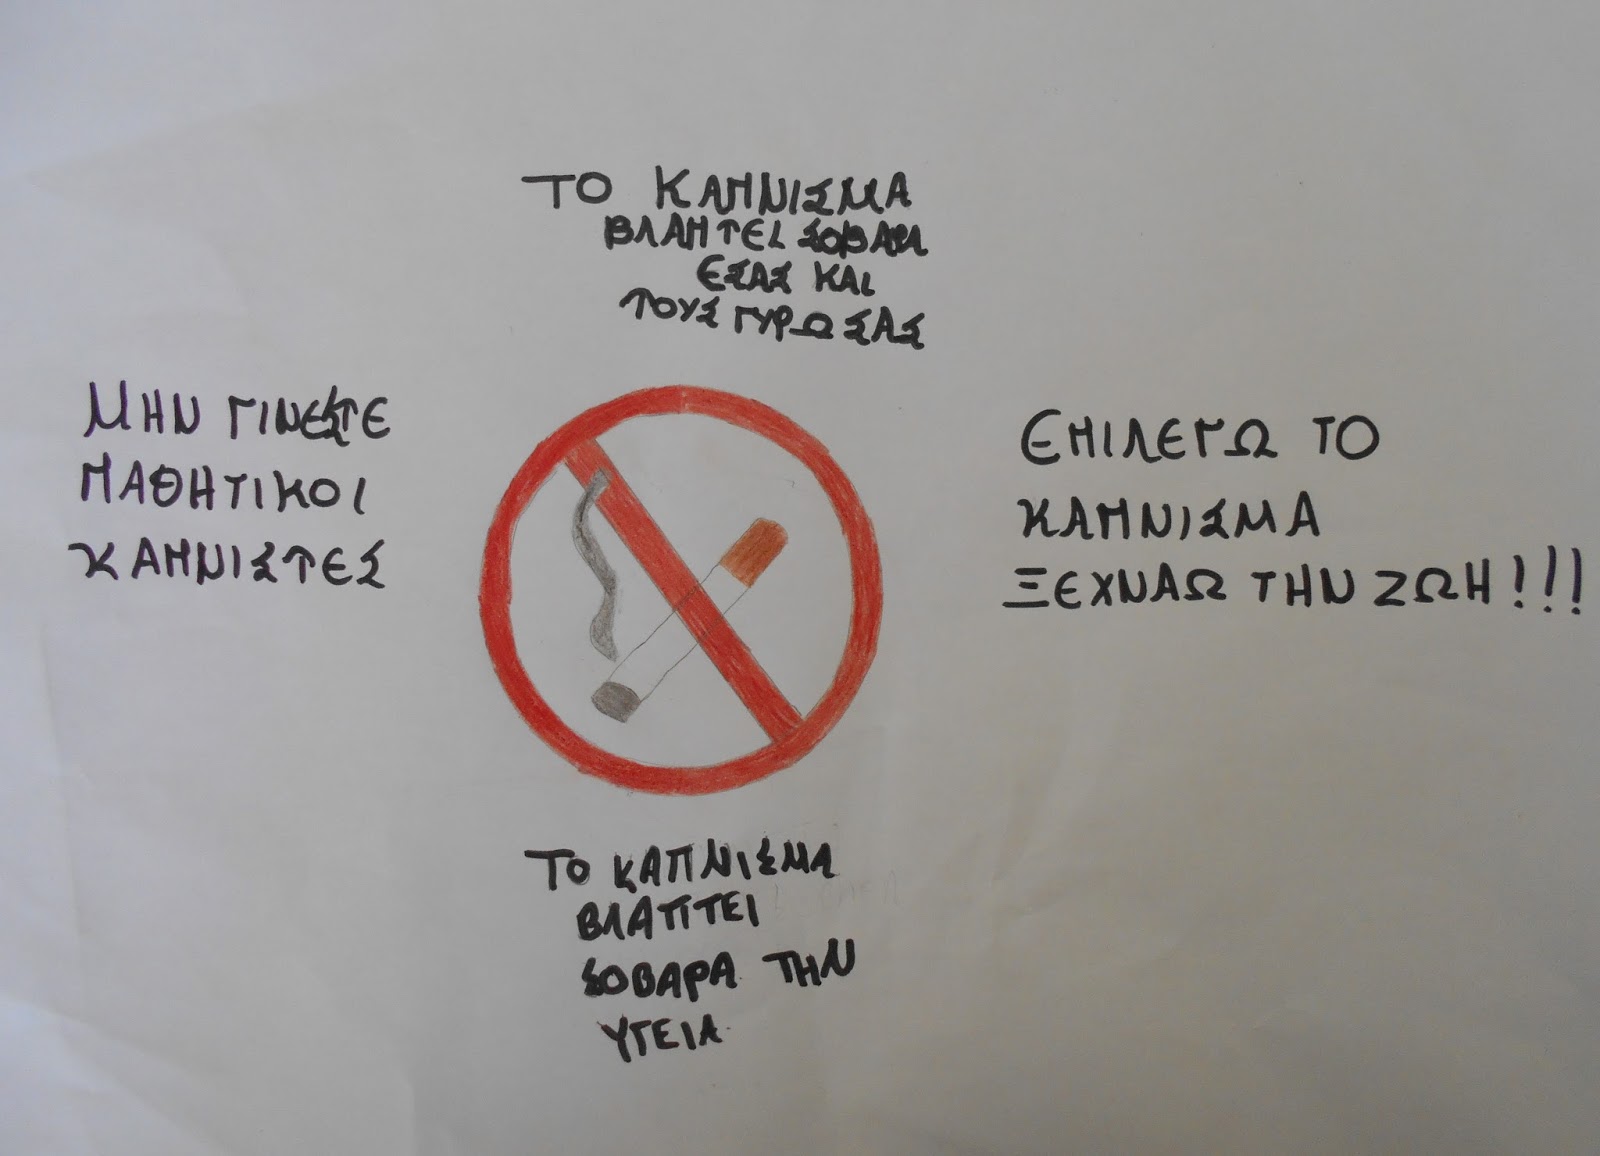 ΤΟ ΚΑΠΝΙΣΜΑ
ΒΛΑΠΤΕΙ ΣΟΒΑΡΑ
ΕΣΑΣ ΚΑΙ
ΤΟΥΣ ΓΥΡΩ ΣΑΣ
ΜΗΝ ΓΙΝΕΣΤΕ
ΠΑΘΗΤΙΚΟΙ
ΚΑΠΝΙΣΤΕΣ
ΕΠΙΛΕΓΩ ΤΟ
ΚΑΠΝΙΣΜΑ
ΞΕΧΝΑΩ ΤΗΝ ΖΩΗ!!!
ΤΟ ΚΑΠΝΙΣΜΑ
ΒΛΑΠΤΕΙ
ΣΟΒΑΡΑ ΤΗΝ
ΥΓΕΙΑ